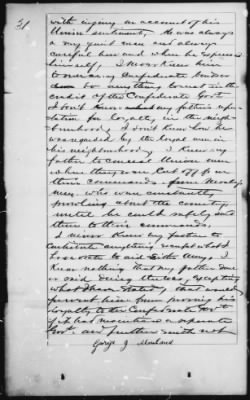 31
with injury on account of his
Union sentiments. He was always
a very quiet man and always
careful how and when he expressed
himself. I never knew him
to receive any Confederate bonds or
do anything to assist in the
credit of the Confederate Govt.
I don't know my father's reputation
for loyalty in the neighborhood.
I don't know how he
was regarded by the loyal men in
his neighborhood. I knew my
father to conceal Union men
when they were cut off from
their commands, from
men, who were constantly
prowling about the country
until he could safely send
them to their commands.
I never knew my father to
contribute anything except what I
have stated to aid either Army. I
know nothing that my father done
or said during the war, excepting
what I have stated, that would
prevent him from proving his
loyalty to the Confederate Govt
if it had maintained a separate
Govt. and further saith not
George J.